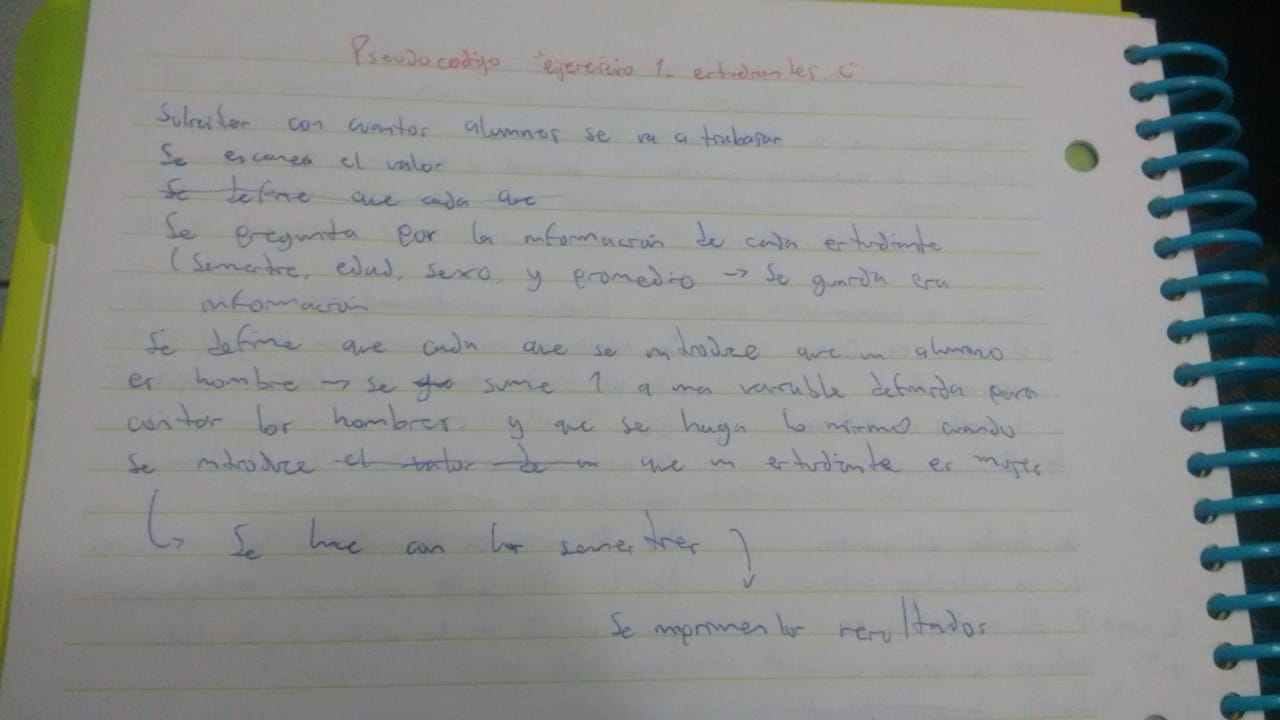 Pseudocodigo "ejercicio 1_ estudiantes C"
Solicitar con cuantos alumnos se va a trabajar
Se escanea el valor
Se define que cada que
Se pregunta por la información de cada estudiante
(Semestre, edad, sexo y promedio → Se guarda esa
información
Se define que cada que se introduce que un alumno
es hombre → se sume 1 a una variable definida para
contar los hombres y que se haga lo mismo cuando
se introduce el valor de un que un estudiante es mujer
↳ Se hace con los semestres
Se imprimen los resultados